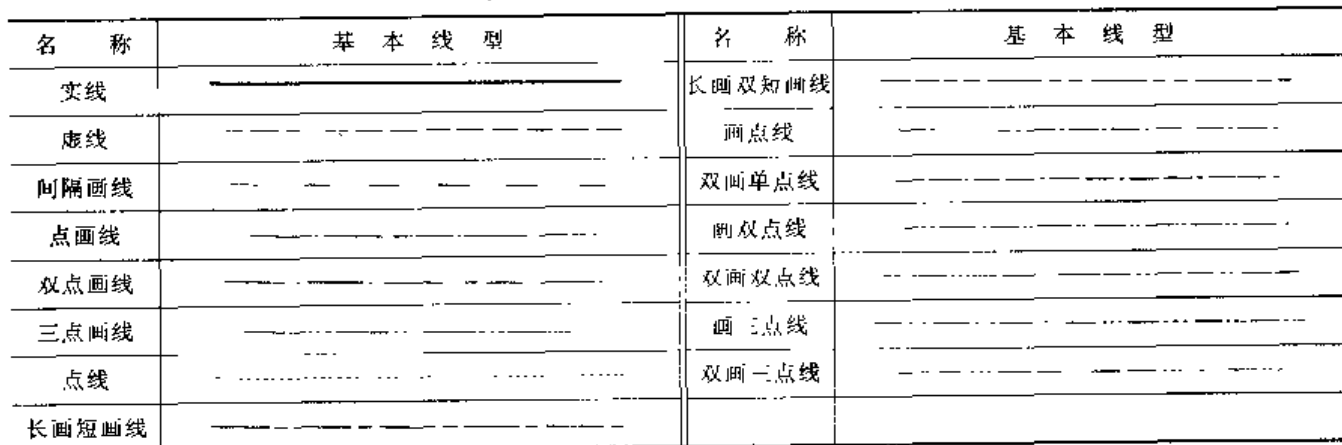 名 称 基 本 线 型 名 称 基 本 线 型
实线 长画双短画线
虚线 画点线
间隔画线 双画单点线
点画线 画双点线
双点画线 双画双点线
三点画线 画三点线
点线 双画三点线
长画短画线